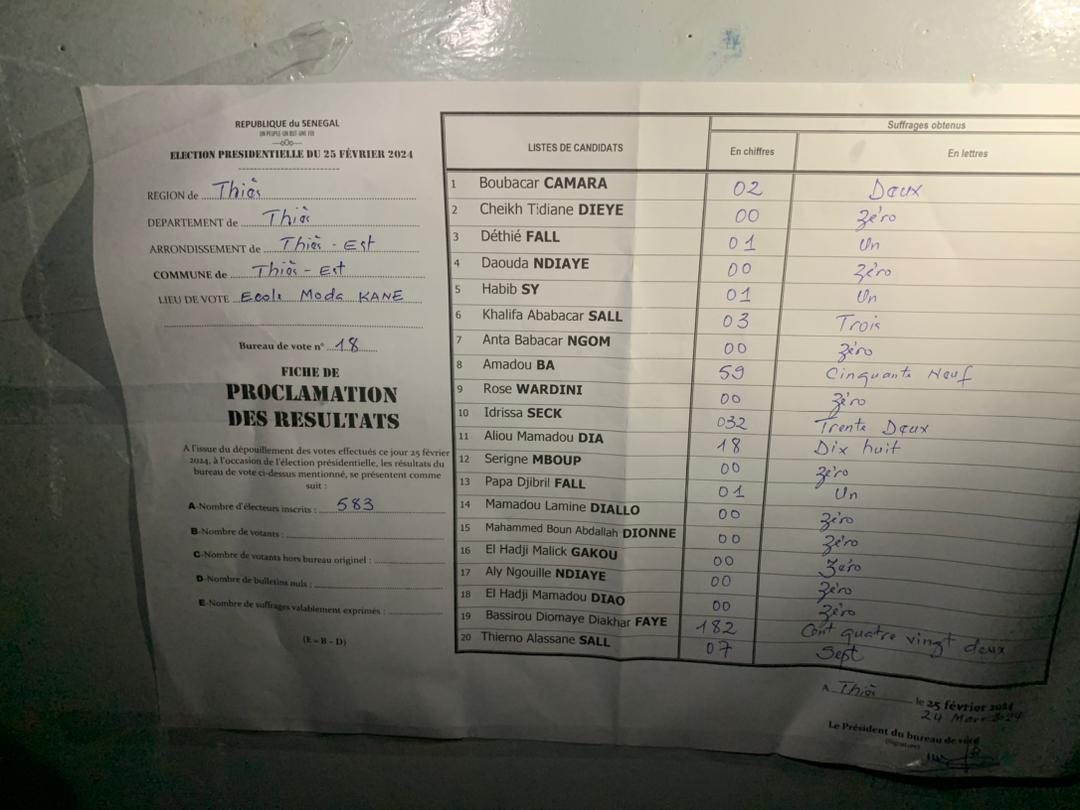 REPUBLIQUE du SENEGAL
UN PEUPLE-UN BUT-UNE FOI
---oOo---
ELECTION PRESIDENTIELLE DU 25 FÉVRIER 2024
REGION de Thiès
DEPARTEMENT de Thiès
ARRONDISSEMENT de Thiès - Est
COMMUNE de Thiès - Est
LIEU DE VOTE Ecole Moda KANE
Bureau de vote n° 18
FICHE DE
PROCLAMATION
DES RESULTATS
A l'issue du dépouillement des votes effectués ce jour 25 février
2024, à l'occasion de l'élection présidentielle, les résultats du
bureau de vote ci-dessus mentionné, se présentent comme
suit :
A-Nombre d'électeurs inscrits : 583
B-Nombre de votants :
C-Nombre de votants hors bureau originel :
D-Nombre de bulletins nuls :
E-Nombre de suffrages valablement exprimés :
(E = B - D)
LISTES DE CANDIDATS Suffrages obtenus
En chiffres En lettres
1 Boubacar CAMARA 02 Deux
2 Cheikh Tidiane DIEYE 00 Zéro
3 Déthié FALL 01 Un
4 Daouda NDIAYE 00 Zéro
5 Habib SY 01 Un
6 Khalifa Ababacar SALL 03 Trois
7 Anta Babacar NGOM 00 Zéro
8 Amadou BA 59 Cinquante Neuf
9 Rose WARDINI 00 Zéro
10 Idrissa SECK 032 Trente Deux
11 Aliou Mamadou DIA 18 Dix huit
12 Serigne MBOUP 00 Zéro
13 Papa Djibril FALL 01 Un
14 Mamadou Lamine DIALLO 00 Zéro
15 Mahammed Boun Abdallah DIONNE 00 Zéro
16 El Hadji Malick GAKOU 00 Zéro
17 Aly Ngouille NDIAYE 00 Zéro
18 El Hadji Mamadou DIAO 00 Zéro
19 Bassirou Diomaye Diakhar FAYE 182 Cent quatre vingt deux
20 Thierno Alassane SALL 07 Sept
A Thiès le 25 février 2024
24 Mars 2024
Le Président du bureau de vote
(Signature)